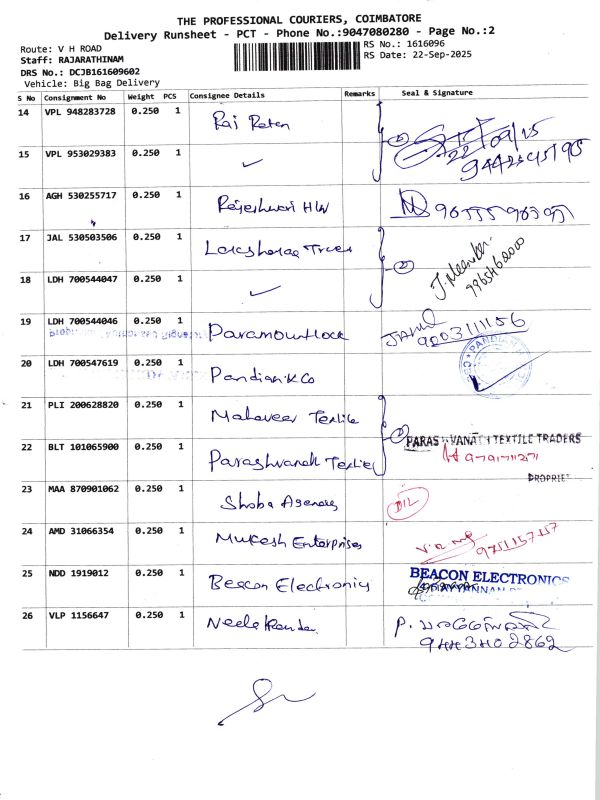 THE PROFESSIONAL COURIERS, COIMBATORE
Delivery Runsheet - PCT - Phone No.:9047080280 - Page No.:2
Route: V H ROAD
Staff: RAJARATHINAM
DRS No.: DCJB161609602
Vehicle: Big Bag Delivery
RS No.: 1616096
RS Date: 22-Sep-2025
S No Consignment No Weight PCS Consignee Details Remarks Seal & Signature
14 VPL 948283728 0.250 1 Raj Ratan
15 VPL 953029383 0.250 1 ✓ 22/09/25
16 AGH 530255717 0.250 1 Rajeshwari H/W
17 JAL 530503506 0.250 1
18 LDH 700544047 0.250 1 ✓
19 LDH 700544046 0.250 1 9203111156
20 LDH 700547619 0.250 1 Pandian K Co PANDIAN
21 PLI 200628820 0.250 1 Mahaveer Textile
22 BLT 101065900 0.250 1 Parashvanath Textiles PARASHVANATH TEXTILE TRADERS
PROPRIET
23 MAA 870901062 0.250 1 Shoba Agencies D/L
24 AMD 31066354 0.250 1 Mukesh Enterprises 9751157157
25 NDD 1919012 0.250 1 Beacon Electronics BEACON ELECTRONICS
26 VLP 1156647 0.250 1 P.